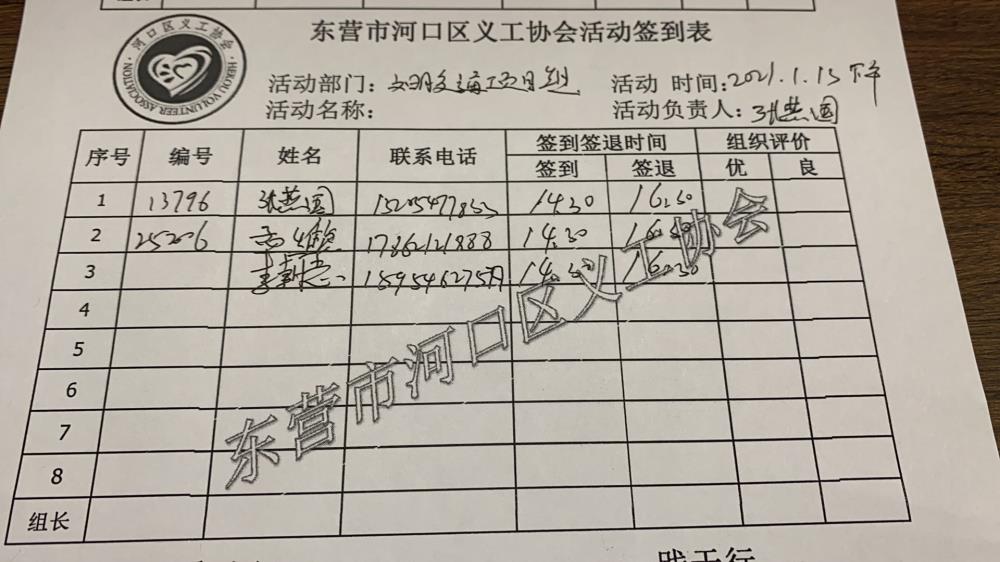 东营市河口区义工协会活动签到表
河口区义工协会
HEKOU VOLUNTEER ASSOCIATION
活动部门：文明交通项目组 活动 时间：2021.1.15下午
活动名称： 活动负责人：张燕国
序号 编号 姓名 联系电话 签到签退时间 组织评价
签到 签退 优 良
1 13796 张燕国 14.30 16.30
2 25206 17862121888 14.30 16.30
3 14.30 16.30
4
5
6
7
8
组长
东营市河口区义工协会